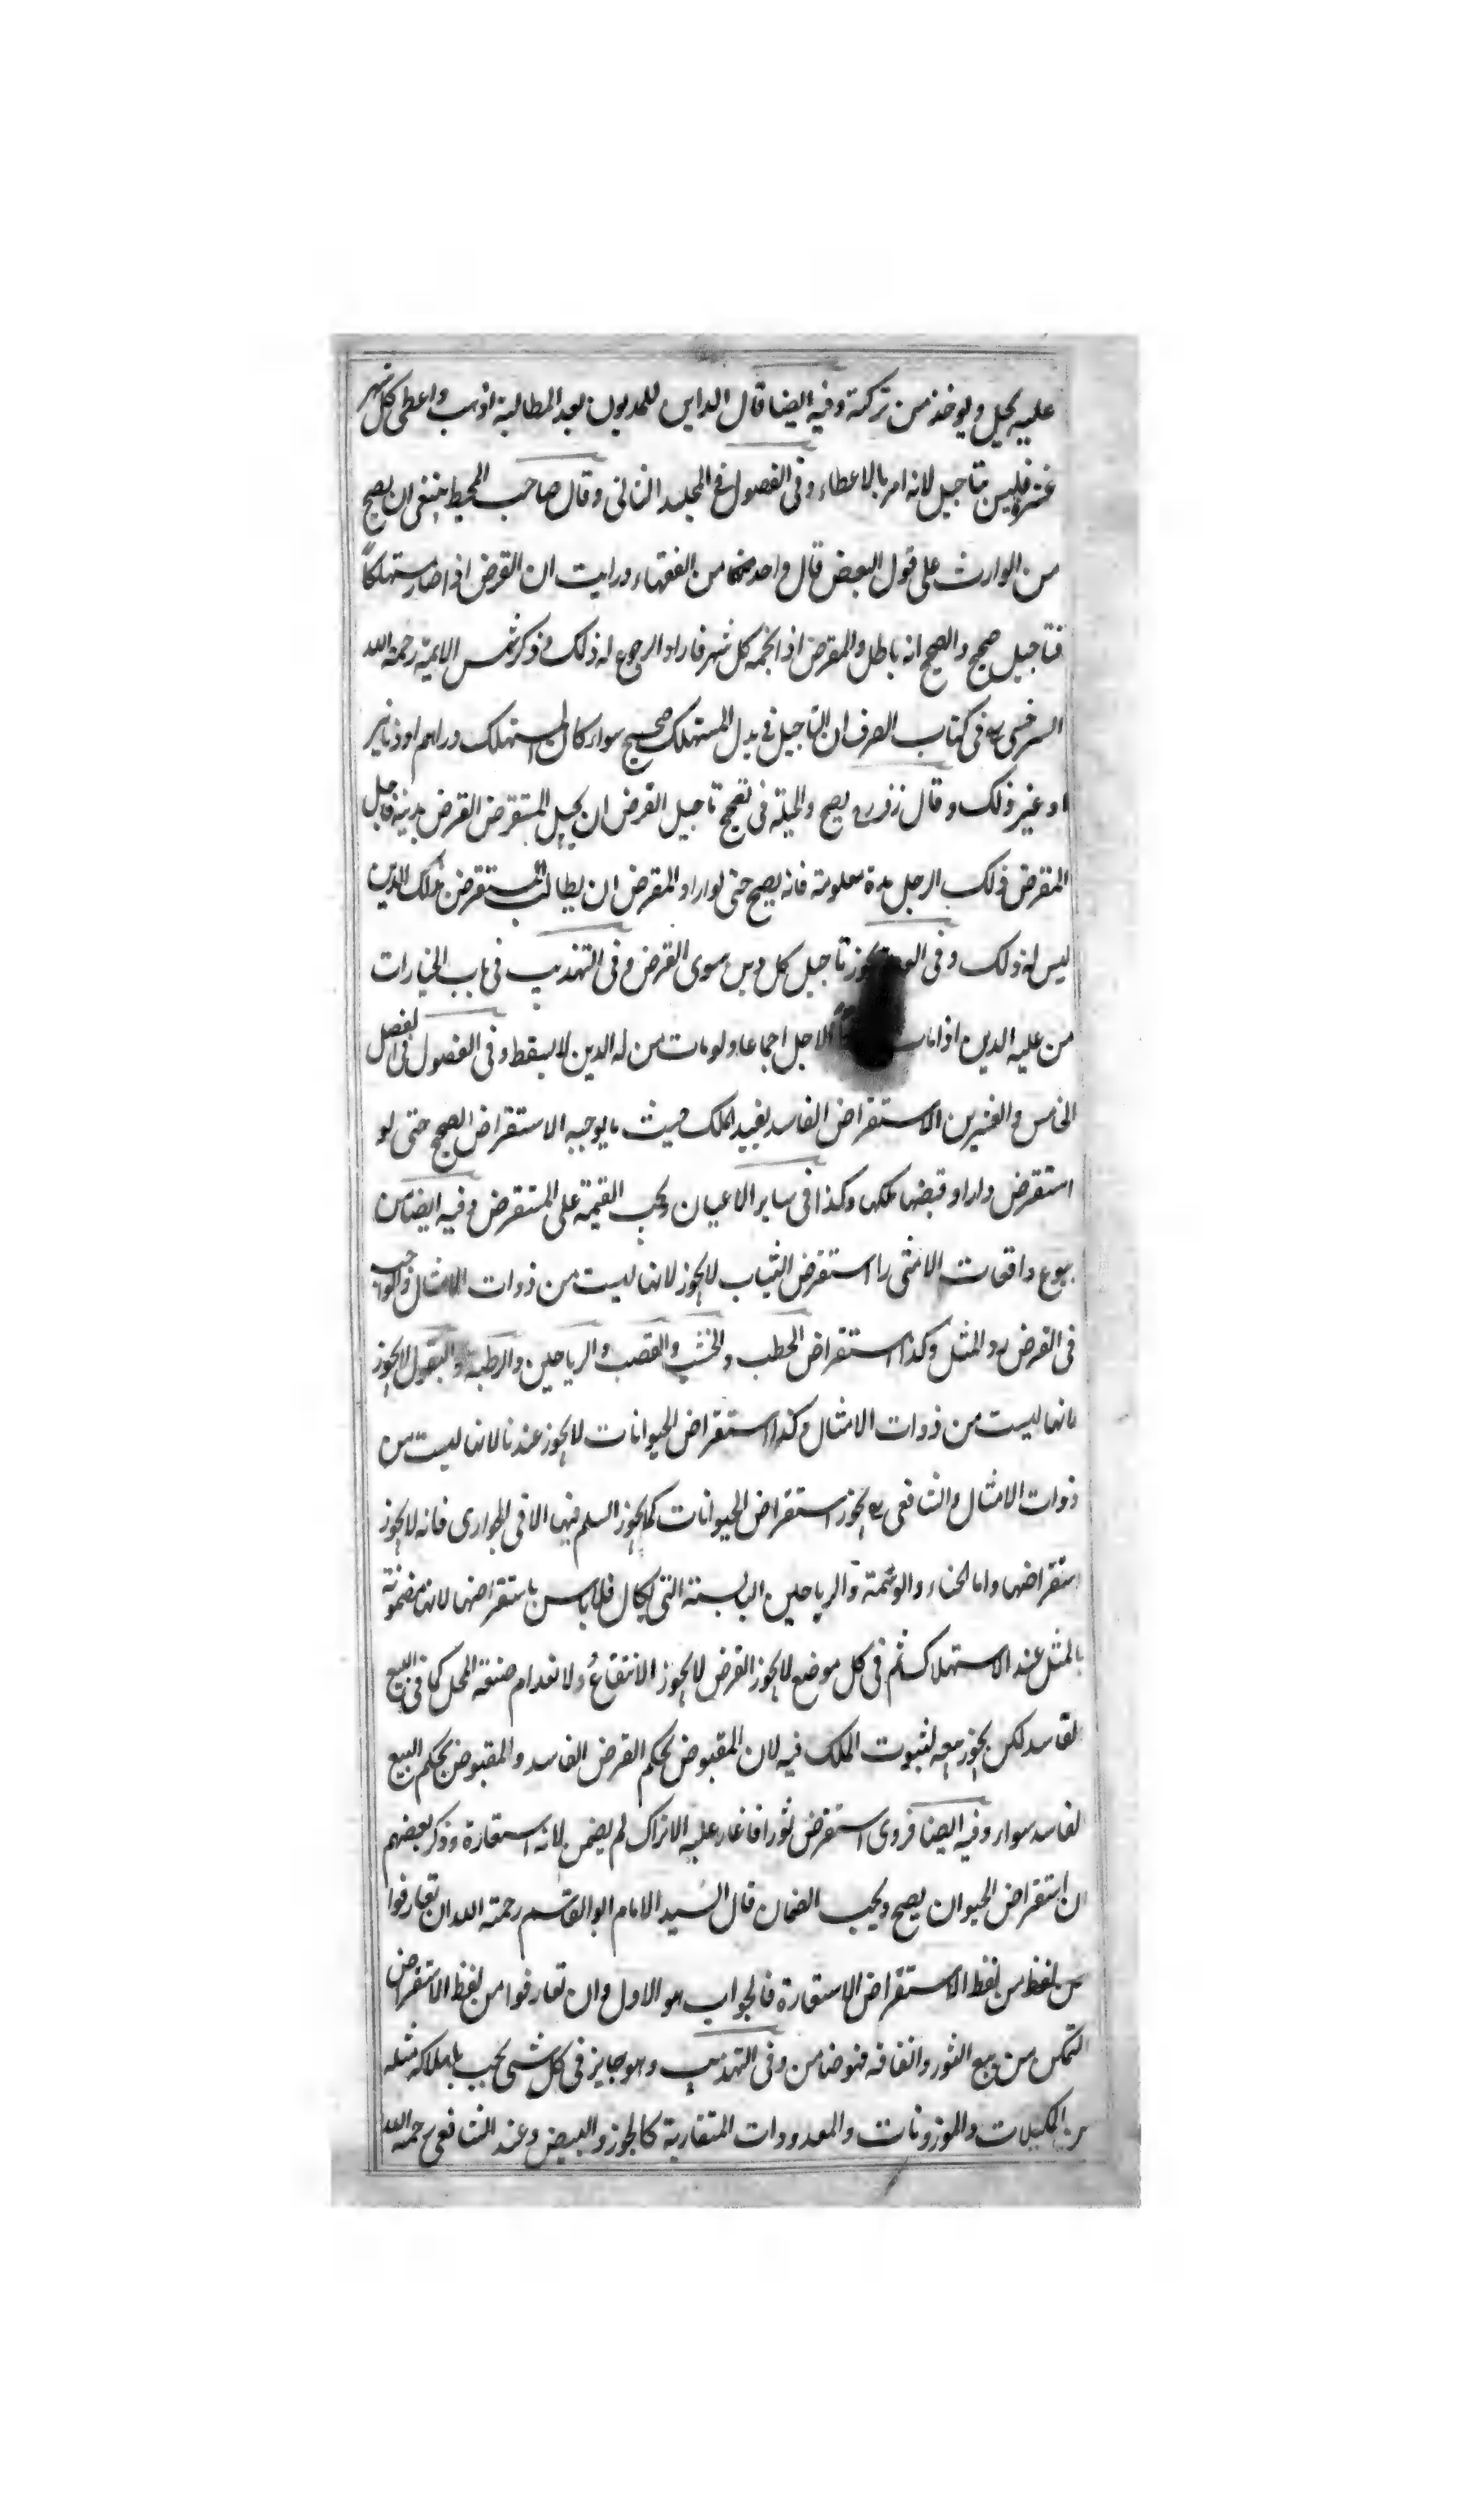 عليه يحل ويوخذ من تركته وفيه ايضا قال الداين للمديون بعد المطالبة اذهب واعطى كل شهر
عشرة فليس بتاجيل لانه امر بالاعطاء وفى الفصول فى المجلد الثانى وقال صاحب المحيط ينبغى ان يصح
من الوارث على قول البعض قال واحد من الفقهاء ورايت ان القرض اذا صار مستهلكاً
فتاجيل صحيح والصحيح انه باطل والمقرض اذا نجمه كل شهر فاراد الرجوع له ذلك وذكر شمس الايمة رحمة الله
السرخسى فى كتاب الصرف ان التاجيل فى بدل المستهلك صحيح سواء كان المستهلك دراهم او دنانير
او غير ذلك وقال زفر يصح والحيلة فى تصحيح تاجيل القرض ان يحيل المستقرض القرض بدينه فاجل
المقرض ذلك الرجل مدة معلومة فانه يصح حتى لو اراد المقرض ان يطالب المستقرض بذلك الدين
ليس له ذلك وفى يجوز تاجيل كل دين سوى القرض وفى التهذيب فى باب الخيارات
من عليه الدين اذا مات الاجل اجماعا ولو مات من له الدين لا يسقط وفى الفصول فى الفصل
الخامس والعشرين الاستقراض الفاسد يفيد الملك حيث ما يوجبه الاستقراض الصحيح حتى لو
استقرض دارا وقبضها ملكها وكذا فى ساير الاعيان ويجب القيمة على المستقرض وفيه ايضا من
بيوع واقعات استقرض الثياب لا يجوز لانها ليست من ذوات الامثال والواجب
فى القرض رد المثل وكذا استقراض الحطب والخشب والقصب والرياحين والرطبة والبقول لا يجوز
لانها ليست من ذوات الامثال وكذا استقراض الحيوانات لا يجوز عندنا لانها ليست من
ذوات الامثال والشافعى يجوز استقراض الحيوانات كما يجوز السلم فيها الا فى الجوارى فانه لا يجوز
استقراضها واما الحناء والوشمة والرياحين اليابسة التى يكال فلا باس باستقراضها لانها مضمونة
بالمثل عند الاستهلاك ثم فى كل موضع لا يجوز القرض لا يجوز الانتفاع ولا نعدام صنعة المحل كما فى البيع
الفاسد لكن يجوز بيعه لثبوت الملك فيه لان المقبوض بحكم القرض الفاسد والمقبوض بحكم البيع
الفاسد سواء وفيه ايضا فروى استقرض ثورا فاغار عليه الاتراك لم يضمن لانه استعارة وذكر بعضهم
ان استقراض الحيوان يصح ويجب الضمان قال السيد الامام ابو القاسم رحمة الله ان تعارفوا
من لفظ من لفظ الاستقراض الاستعارة فالجواب هو الاول وان تعارفوا من لفظ الاستقراض
التمكن من بيع الثور وانفاقه فهو ضامن وفى التهذيب وهو جايز فى كل شى يجب باهلاكه مثله
من المكيلات والموزونات والمعدودات المتقاربة كالجوز والبيض وعند الشافعى رحمة الله